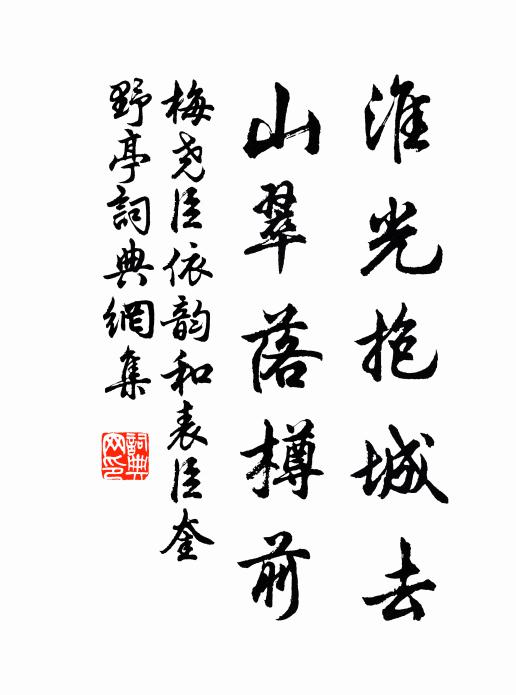 淮光抱城去
山翠落樽前
梅尧臣依韵和表臣奎
野亭詞典網集
詞典網印